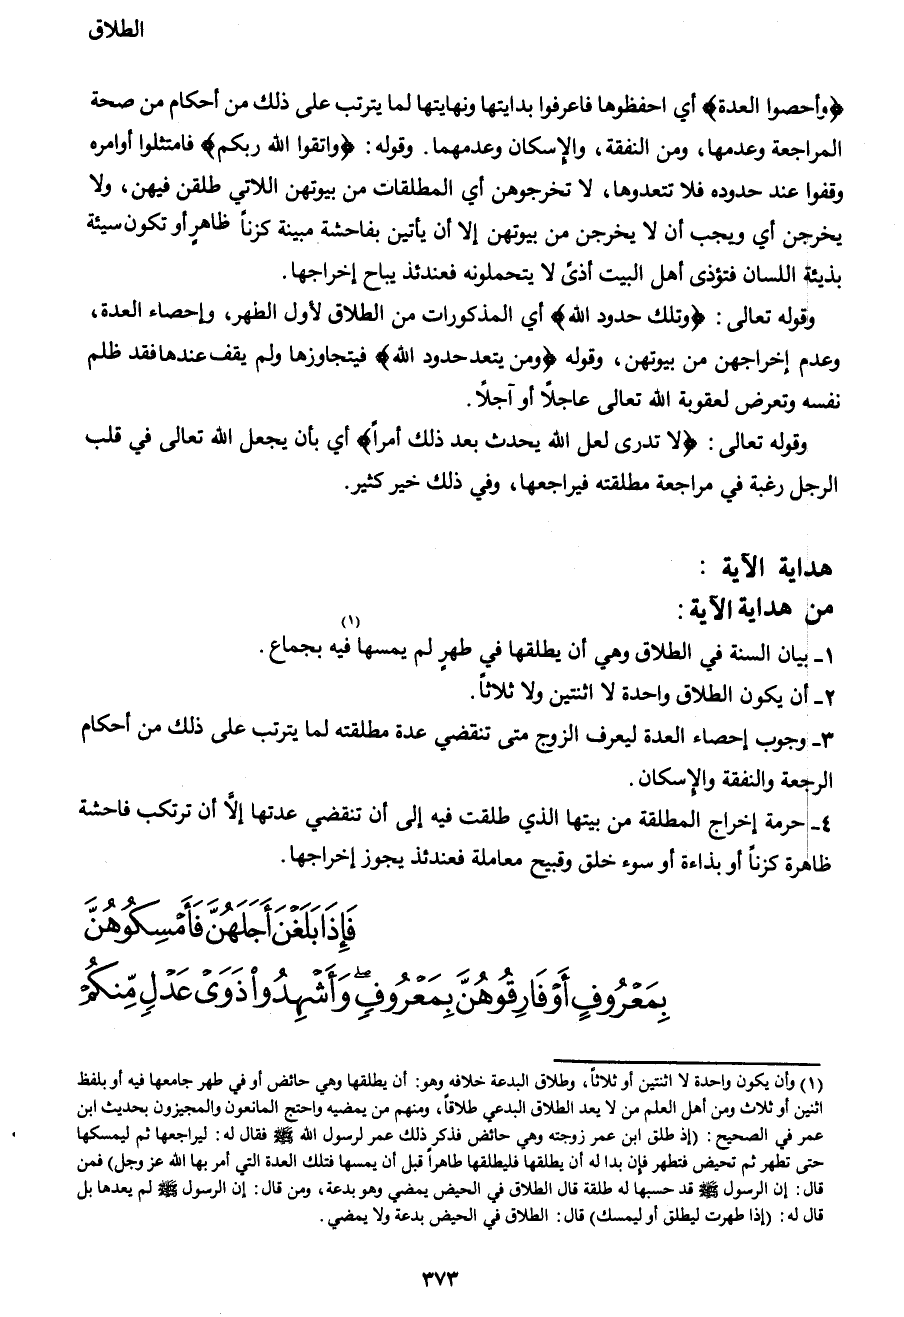 الطلاق
﴿وأحصوا العدة﴾ أي احفظوها فاعرفوا بدايتها ونهايتها لما يترتب على ذلك من أحكام من صحة
المراجعة وعدمها، ومن النفقة، والإسكان وعدمهما. وقوله: ﴿واتقوا الله ربكم﴾ فامتثلوا أوامره
وقفوا عند حدوده فلا تتعدوها، لا تخرجوهن أي المطلقات من بيوتهن اللاتي طلقن فيهن، ولا
يخرجن أي ويجب أن لا يخرجن من بيوتهن إلا أن يأتين بفاحشة مبينة كزناً ظاهرٍ أو تكون سيئة
بذيئة اللسان فتؤذى أهل البيت أذىً لا يتحملونه فعندئذ يباح إخراجها.
وقوله تعالى: ﴿وتلك حدود الله﴾ أي المذكورات من الطلاق لأول الطهر، وإحصاء العدة،
وعدم إخراجهن من بيوتهن، وقوله ﴿ومن يتعد حدود الله﴾ فيتجاوزها ولم يقف عندها فقد ظلم
نفسه وتعرض لعقوبة الله تعالى عاجلاً أو آجلاً.
وقوله تعالى: ﴿لا تدرى لعل الله يحدث بعد ذلك أمراً﴾ أي بأن يجعل الله تعالى في قلب
الرجل رغبة في مراجعة مطلقته فيراجعها، وفي ذلك خير كثير.
هداية الآية :
من هداية الآية:
١ـ بيان السنة في الطلاق وهي أن يطلقها في طهرٍ لم يمسها فيه(١) بجماع.
٢ـ أن يكون الطلاق واحدة لا اثنتين ولا ثلاثاً.
٣ـ وجوب إحصاء العدة ليعرف الزوج متى تنقضي عدة مطلقته لما يترتب على ذلك من أحكام
الرجعة والنفقة والإسكان.
٤ـ حرمة إخراج المطلقة من بيتها الذي طلقت فيه إلى أن تنقضي عدتها إلاَّ أن ترتكب فاحشة
ظاهرة كزناً أو بذاءة أو سوء خلق وقبيح معاملة فعندئذ يجوز إخراجها.
فَإِذَا بَلَغْنَ أَجَلَهُنَّ فَأَمْسِكُوهُنَّ
بِمَعْرُوفٍ أَوْ فَارِقُوهُنَّ بِمَعْرُوفٍ ۖ وَأَشْهِدُوا۟ ذَوَىْ عَدْلٍ مِّنكُمْ
(١) وأن يكون واحدة لا اثنتين أو ثلاثاً، وطلاق البدعة خلافه وهو: أن يطلقها وهي حائض أو في طهر جامعها فيه أو بلفظ
اثنين أو ثلاث ومن أهل العلم من لا يعد الطلاق البدعي طلاقاً، ومنهم من يمضيه واحتج المانعون والمجيزون بحديث ابن
عمر في الصحيح: (إذ طلق ابن عمر زوجته وهي حائض فذكر ذلك عمر لرسول الله ﷺ فقال له: ليراجعها ثم ليمسكها
حتى تطهر ثم تحيض فتطهر فإن بدا له أن يطلقها فليطلقها طاهراً قبل أن يمسها فتلك العدة التي أمر بها الله عز وجل) فمن
قال: إن الرسول ﷺ قد حسبها له طلقة قال الطلاق في الحيض يمضي وهو بدعة، ومن قال: إن الرسول ﷺ لم يعدها بل
قال له: (إذا طهرت ليطلق أو ليمسك) قال: الطلاق في الحيض بدعة ولا يمضي.
٣٧٣